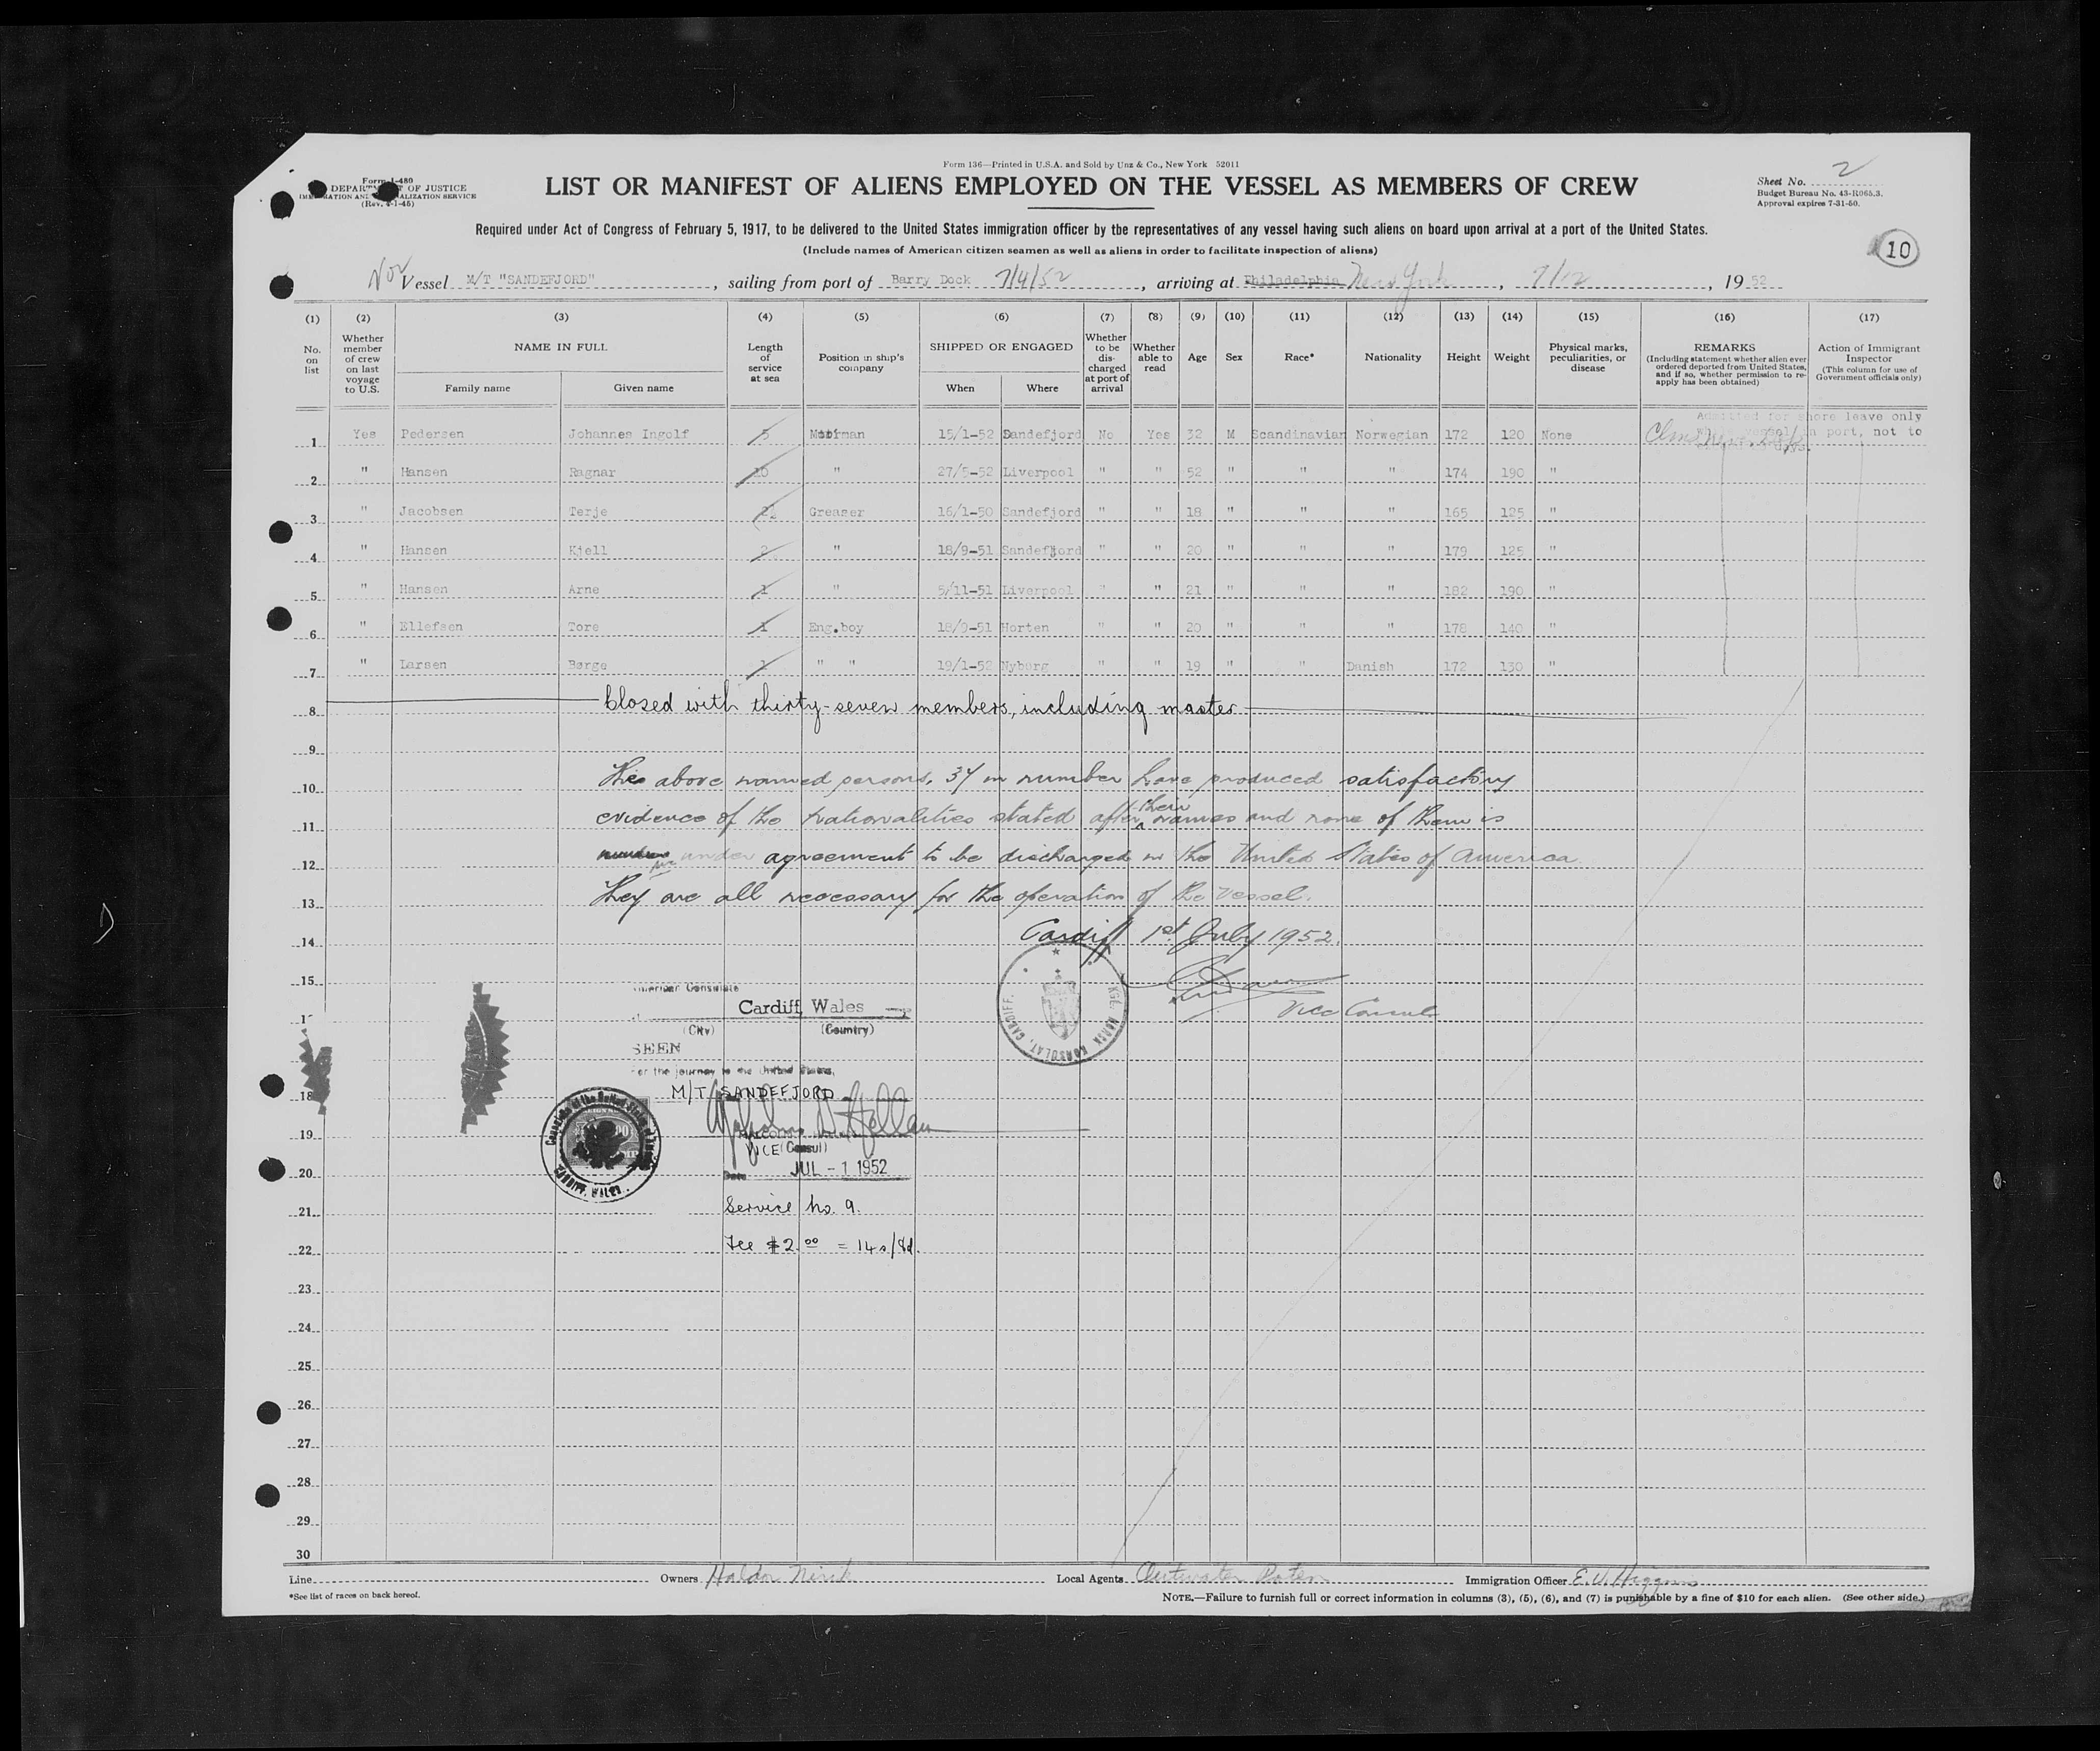 Form 136—Printed in U.S.A. and Sold by Unz & Co., New York 52011
Form I-480
DEPARTMENT OF JUSTICE
IMMIGRATION AND NATURALIZATION SERVICE
(Rev. 4-1-45)
LIST OR MANIFEST OF ALIENS EMPLOYED ON THE VESSEL AS MEMBERS OF CREW
Sheet No. 2
Budget Bureau No. 43-R065.3.
Approval expires 7-31-50.
Required under Act of Congress of February 5, 1917, to be delivered to the United States immigration officer by the representatives of any vessel having such aliens on board upon arrival at a port of the United States.
(Include names of American citizen seamen as well as aliens in order to facilitate inspection of aliens)
10
Nor Vessel M/T "SANDEFJORD", sailing from port of Barry Dock 7/4/52, arriving at Philadelphia New York, 7/12, 19 52
(1) (2) (3) (4) (5) (6) (7) (8) (9) (10) (11) (12) (13) (14) (15) (16) (17)
No. on list
Whether member of crew on last voyage to U.S.
NAME IN FULL
Family name
Given name
Length of service at sea
Position in ship's company
SHIPPED OR ENGAGED
When
Where
Whether to be discharged at port of arrival
Whether able to read
Age
Sex
Race*
Nationality
Height
Weight
Physical marks, peculiarities, or disease
REMARKS
(Including statement whether alien ever ordered deported from United States, and if so, whether permission to reapply has been obtained)
Action of Immigrant Inspector
(This column for use of Government officials only)
Admitted for shore leave only
while vessel in port, not to
1 Yes Pedersen Johannes Ingolf 5 Motorman 15/1-52 Sandefjord No Yes 32 M Scandinavian Norwegian 172 120 None
2 " Hansen Ragnar 10 " 27/5-52 Liverpool " " 52 " " " 174 190 "
3 " Jacobsen Terje 2½ Greaser 16/1-50 Sandefjord " " 18 " " " 165 125 "
4 " Hansen Kjell 2 " 18/9-51 Sandefjord " " 20 " " " 179 125 "
5 " Hansen Arne 1 " 5/11-51 Liverpool " " 21 " " " 182 190 "
6 " Ellefsen Tore 1 Eng.boy 18/9-51 Horten " " 20 " " " 178 140 "
7 " Larsen Børge 1 " " 19/1-52 Nyborg " " 19 " " Danish 172 130 "
8 Closed with thirty-seven members, including master
9
10 The above named persons, 37 in number have produced satisfactory
11 evidence of the nationalities stated after their names and none of them is
12 under agreement to be discharged in the United States of America
13 They are all necessary for the operation of the vessel.
14 Cardiff 1st July 1952.
15
Vice Consul
KGL. NORSK KONSULAT, CARDIFF.
American Consulate
Cardiff, Wales
(City) (Country)
SEEN
For the journey to the United States,
M/T SANDEFJORD
18
19
VICE (Consul)
Date JUL - 1 1952
20
21 Service No. 9.
22 Fee $2.00 = 14s/4d.
23
24
25
26
27
28
29
30
Line Owners Local Agents Immigration Officer E. J. Higgins
*See list of races on back hereof.
NOTE.—Failure to furnish full or correct information in columns (3), (5), (6), and (7) is punishable by a fine of $10 for each alien. (See other side.)